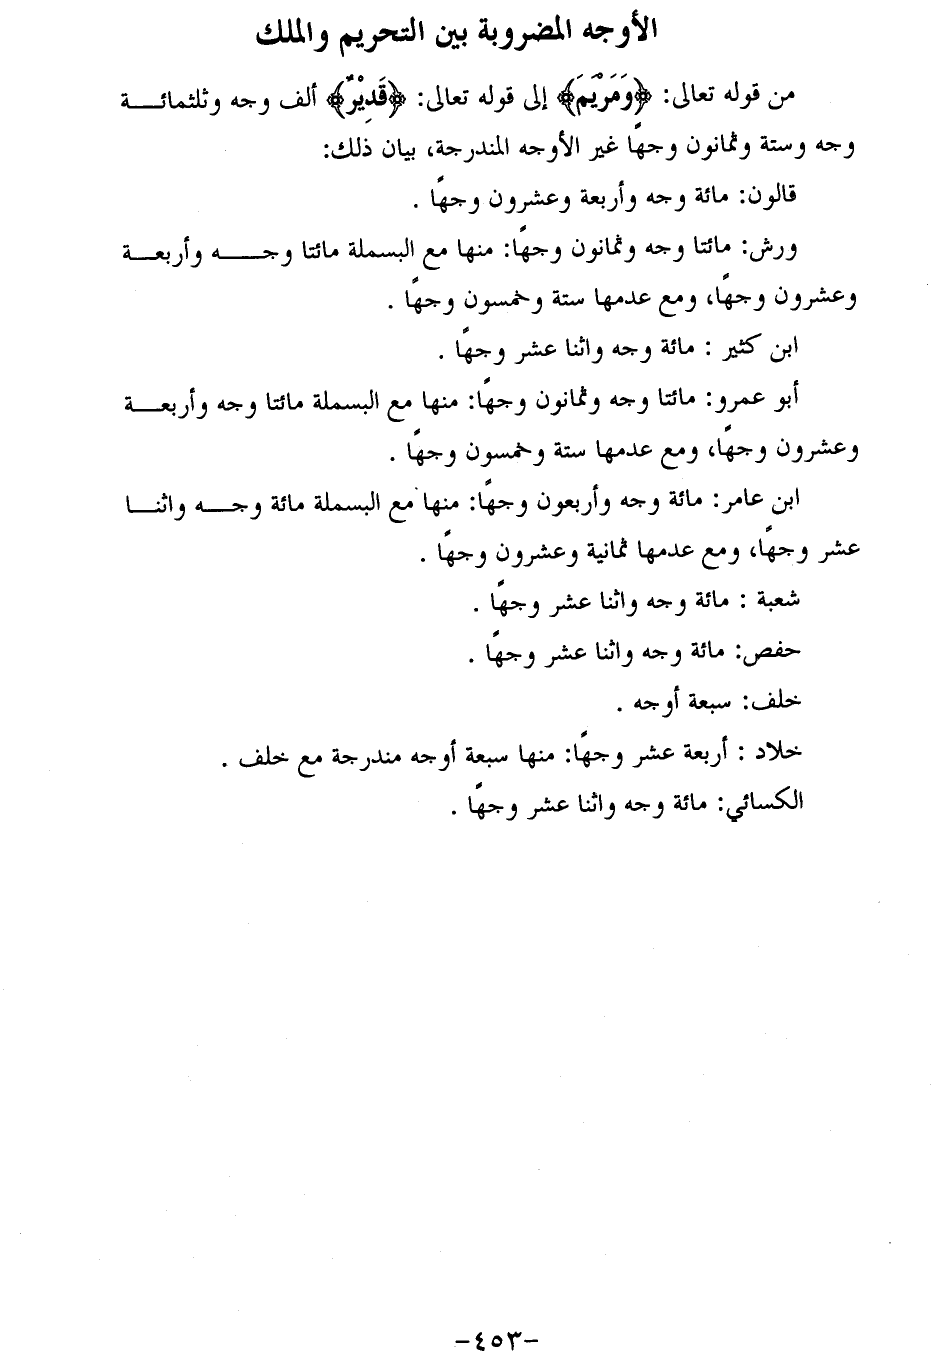 الأوجه المضروبة بين التحريم والملك
من قوله تعالى: ﴿وَمَرْيَمَ﴾ إلى قوله تعالى: ﴿قَدِيْرٌ﴾ ألف وجه وثلثمائـــة
وجه وستة وثمانون وجهًا غير الأوجه المندرجة، بيان ذلك:
قالون: مائة وجه وأربعة وعشرون وجهًا .
ورش: مائتا وجه وثمانون وجهًا: منها مع البسملة مائتا وجـــــه وأربعـــة
وعشرون وجهًا، ومع عدمها ستة وخمسون وجهًا .
ابن كثير : مائة وجه واثنا عشر وجهًا .
أبو عمرو: مائتا وجه وثمانون وجهًا: منها مع البسملة مائتا وجه وأربعـــة
وعشرون وجهًا، ومع عدمها ستة وخمسون وجهًا .
ابن عامر: مائة وجه وأربعون وجهًا: منها مع البسملة مائة وجـــه واثنـــا
عشر وجهًا، ومع عدمها ثمانية وعشرون وجهًا .
شعبة : مائة وجه واثنا عشر وجهًا .
حفص: مائة وجه واثنا عشر وجهًا .
خلف: سبعة أوجه .
خلاد : أربعة عشر وجهًا: منها سبعة أوجه مندرجة مع خلف .
الكسائي: مائة وجه واثنا عشر وجهًا .
-٤٥٣-